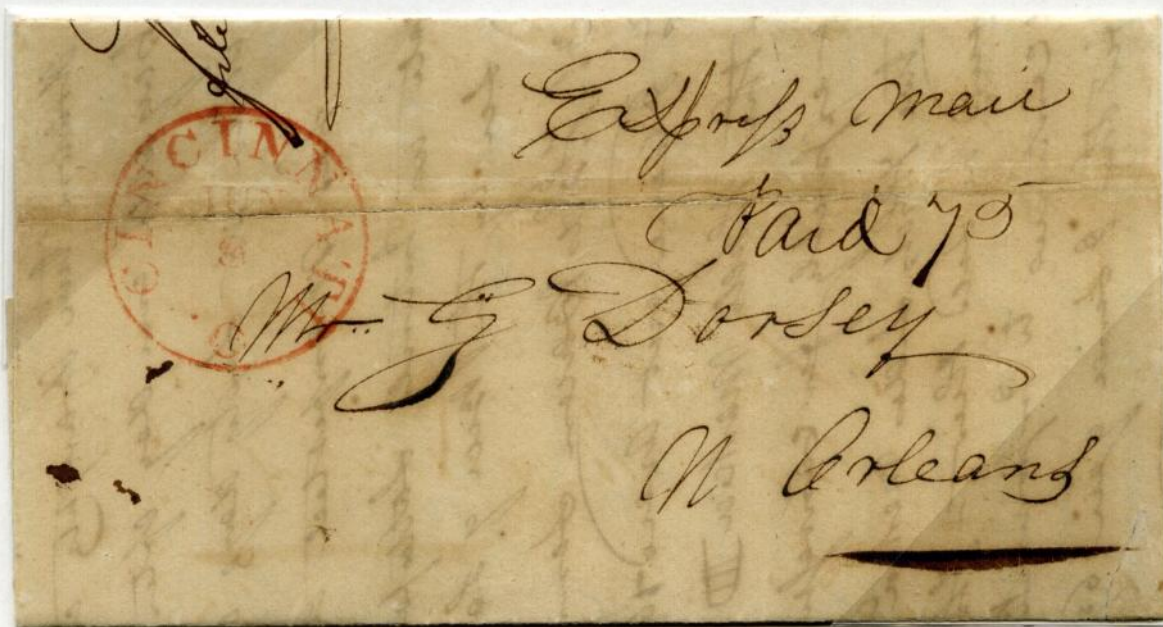 CINCINNATI O
JUN
Express Mail
Paid 75
Mr. G Dorsey
N Orleans